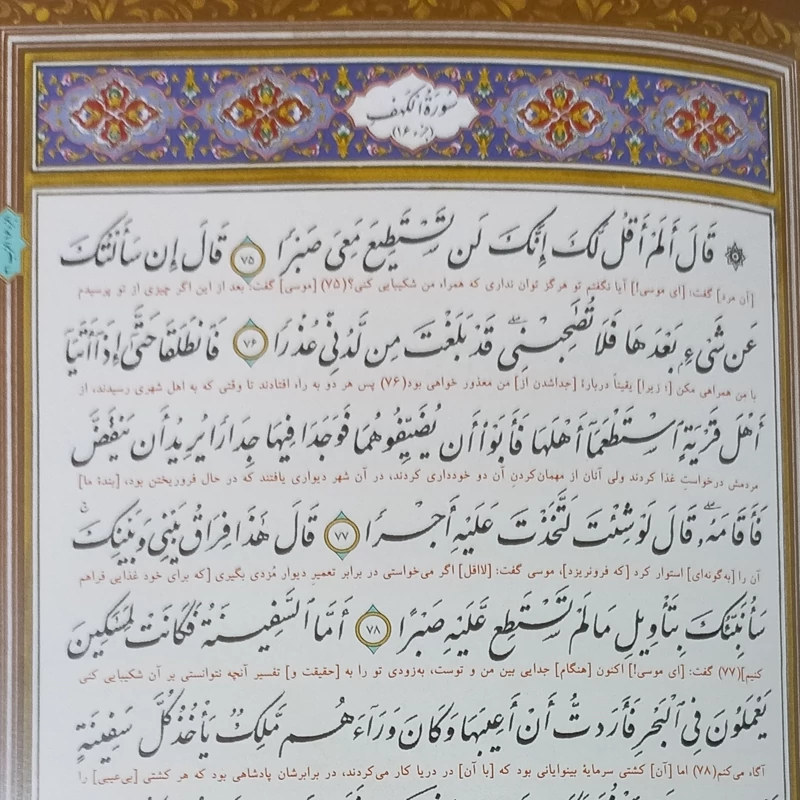 سُورَةُ الْكَهْفِ
جزء ۱۶
قَالَ أَلَمْ أَقُلْ لَكَ إِنَّكَ لَنْ تَسْتَطِيعَ مَعِيَ صَبْرًا ۷۵ قَالَ إِنْ سَأَلْتُكَ
[آن مرد] گفت: [ای موسی!] آیا نگفتم تو هرگز توان نداری که همراه من شکیبایی کنی؟(۷۵) [موسی] گفت: بعد از این اگر چیزی از تو پرسیدم
عَنْ شَيْءٍ بَعْدَهَا فَلَا تُصَاحِبْنِي قَدْ بَلَغْتَ مِنْ لَدُنِّي عُذْرًا ۷۶ فَانْطَلَقَا حَتَّىٰ إِذَا أَتَيَا
با من همراهی مکن [؛ زیرا] یقیناً دربارهٔ [جداشدن از] من معذور خواهی بود(۷۶) پس هر دو به راه افتادند تا وقتی که به اهل شهری رسیدند، از
أَهْلَ قَرْيَةٍ اسْتَطْعَمَا أَهْلَهَا فَأَبَوْا أَنْ يُضَيِّفُوهُمَا فَوَجَدَا فِيهَا جِدَارًا يُرِيدُ أَنْ يَنْقَضَّ
مردمش درخواست غذا کردند ولی آنان از مهمان‌کردنِ آن دو خودداری کردند، در آن شهر دیواری یافتند که در حال فروریختن بود، [بندهٔ ما]
فَأَقَامَهُ قَالَ لَوْ شِئْتَ لَتَّخَذْتَ عَلَيْهِ أَجْرًا ۷۷ قَالَ هَٰذَا فِرَاقُ بَيْنِي وَبَيْنِكَ
آن را [به‌گونه‌ای] استوار کرد [که فرونریزد]، موسی گفت: [لااقل] اگر می‌خواستی در برابر تعمیر دیوار مُزدی بگیری [که برای خود غذایی فراهم
سَأُنَبِّئُكَ بِتَأْوِيلِ مَا لَمْ تَسْتَطِعْ عَلَيْهِ صَبْرًا ۷۸ أَمَّا السَّفِينَةُ فَكَانَتْ لِمَسَٰكِينَ
کنیم](۷۷) گفت: [ای موسی!] اکنون [هنگام] جدایی بین من و توست، به‌زودی تو را به [حقیقت و] تفسیر آنچه نتوانستی بر آن شکیبایی کنی
يَعْمَلُونَ فِي الْبَحْرِ فَأَرَدْتُ أَنْ أَعِيبَهَا وَكَانَ وَرَاءَهُمْ مَلِكٌ يَأْخُذُ كُلَّ سَفِينَةٍ
آگاه می‌کنم(۷۸) اما [آن] کشتی سرمایهٔ بینوایانی بود که [با آن] در دریا کار می‌کردند، در برابرشان پادشاهی بود که هر کشتی [بی‌عیبی] را